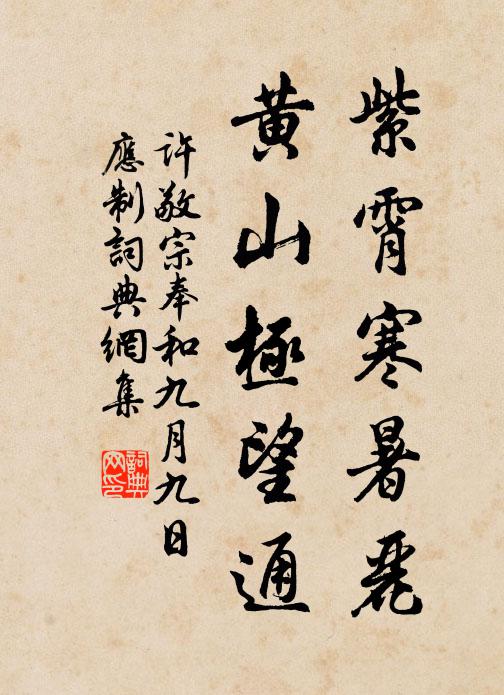 紫霄寒暑麗
黄山極望通
許敬宗奉和九月九日
應制詞典網集
詞典
网印